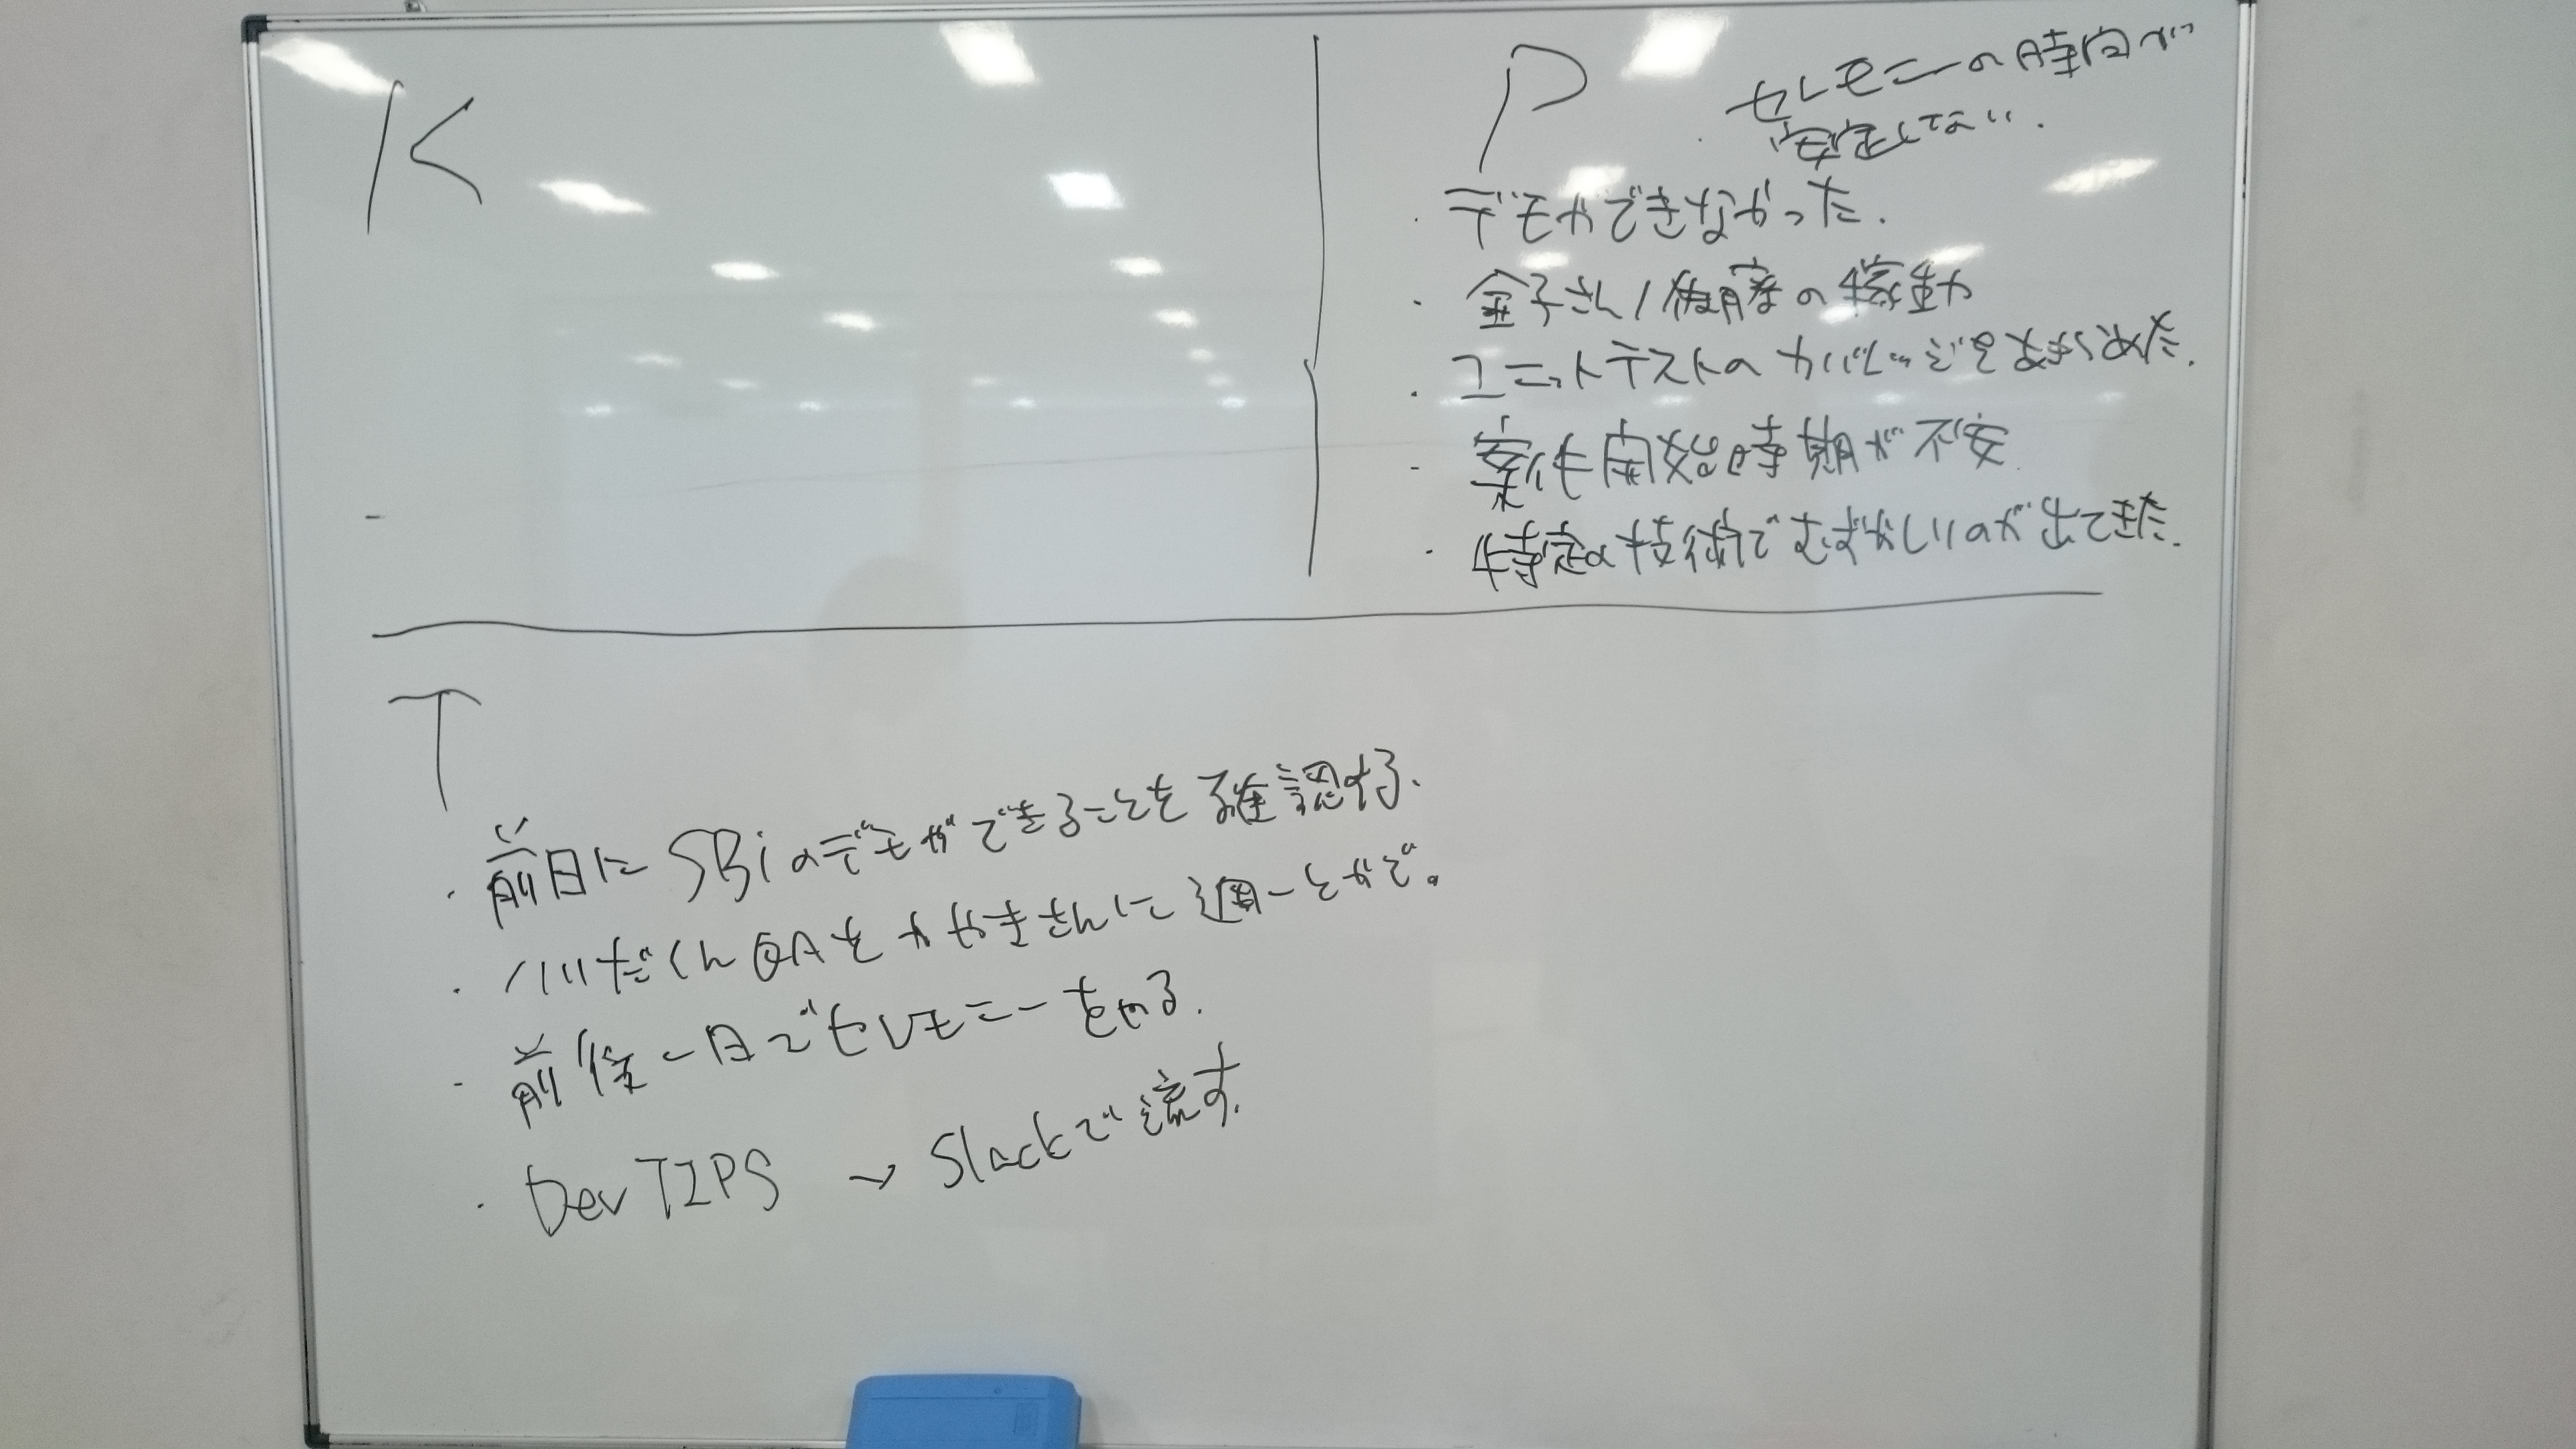 K
P
セレモニーの時間が
安定してない.
・デモができなかった.
・金子さん/後藤の稼動
・ユニットテストのカバレッジをあきらめた.
・案件開始時期が不安
・特定の技術でむずかしいのが出てきた.
T
・前日にSBiのデモができることを確認する.
・川だくんQAをかやきさんに週一とかで。
・前後一日でセレモニーをやる.
・Dev TIPS → Slackで流す.